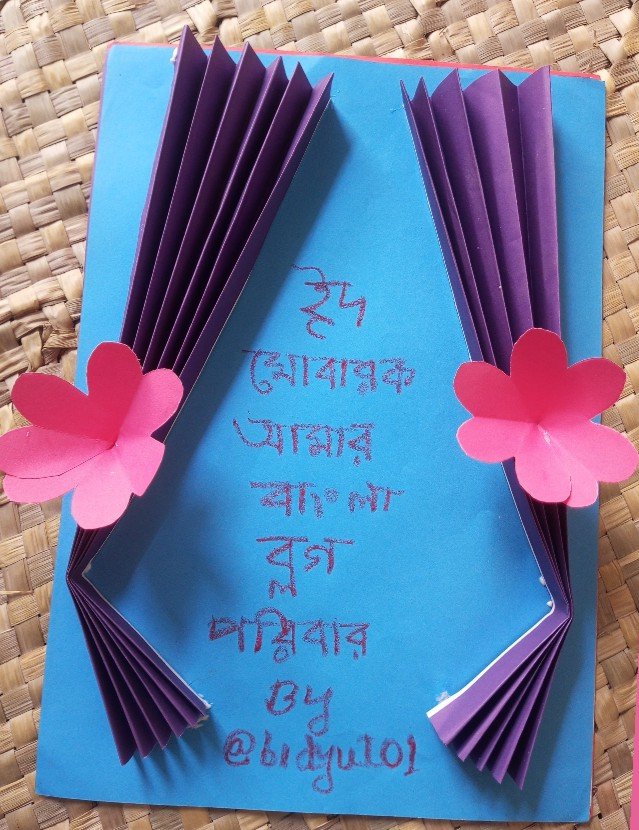 ঈদ
মোবারক
আমার
বাংলা
ব্লগ
পরিবার
By
@bidyut01